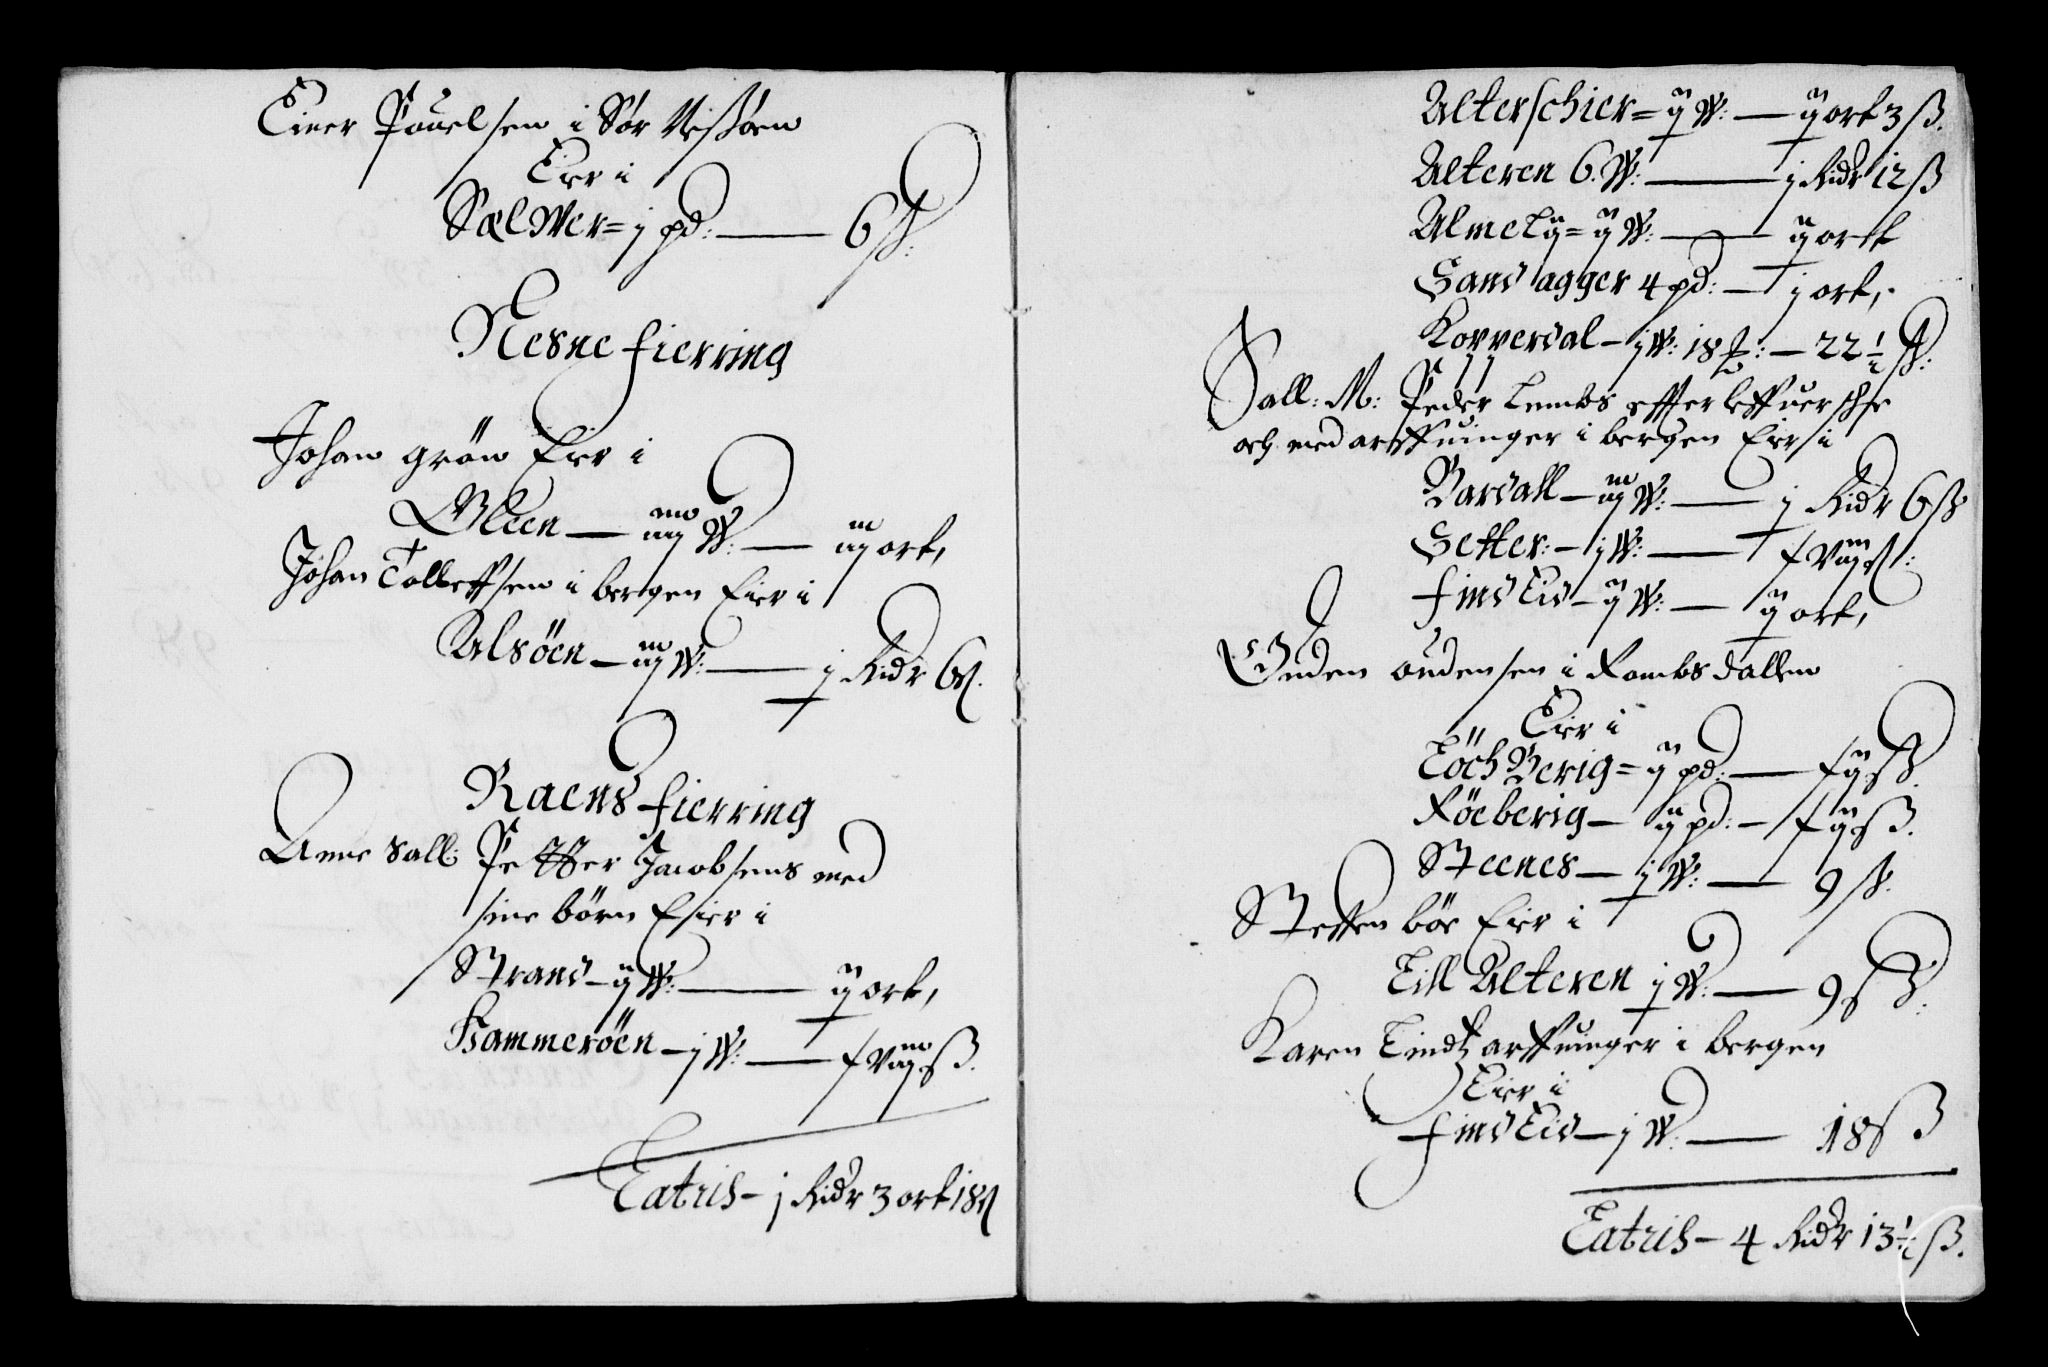 Einer Pouelsen i Sør Nesøen
Eier i
Sæl Wer = j pd: — 6 ß:
Nesne fierring
Johan grön Eier i
Gleen — iiij W: — iij ort,
Johan Tolleffsen i bergen Eier i
Alsöen — iij W: — j Ridr 6 ß.
Raens fierring
Anne Sall: Petter Jacobsens med
sine börn Eier i
Strand — ij W: — ij ort,
Hammeröen — j W: — xviij ß.
Latris — j Ridr 3 ort 18 ß
Alterschier = ij W: — ij ort 3 ß.
Alteren 6. W: — j Ridr 12 ß
Almelij = ij W: — ij ort
Sandagger 4 pd: — j ort,
Kopperdal — j W: 18 — 22 1/2 ß:
Sall: M: Peder Lembs effterleffuersche
och med arffuinger i bergen Eier i
Bardall — iij W: — j Ridr 6 ß
Setter: — j W: — xviij ß:
Findseid — ij W: — ij ort,
Ouden oudensen i Rombsdallen
Eier i
Löch Berig = ij pd: — xij ß
Röeberig — ij pd: — xij ß.
Steenes — j W: — 9 ß.
Stetten böe Eier i
Lill Alteren j W: — 9 ß:
Karen Lindtz arffuinger i bergen
Eier i
Findseid — j W: — 18 ß
Latris — 4 Ridr 13 1/2 ß.